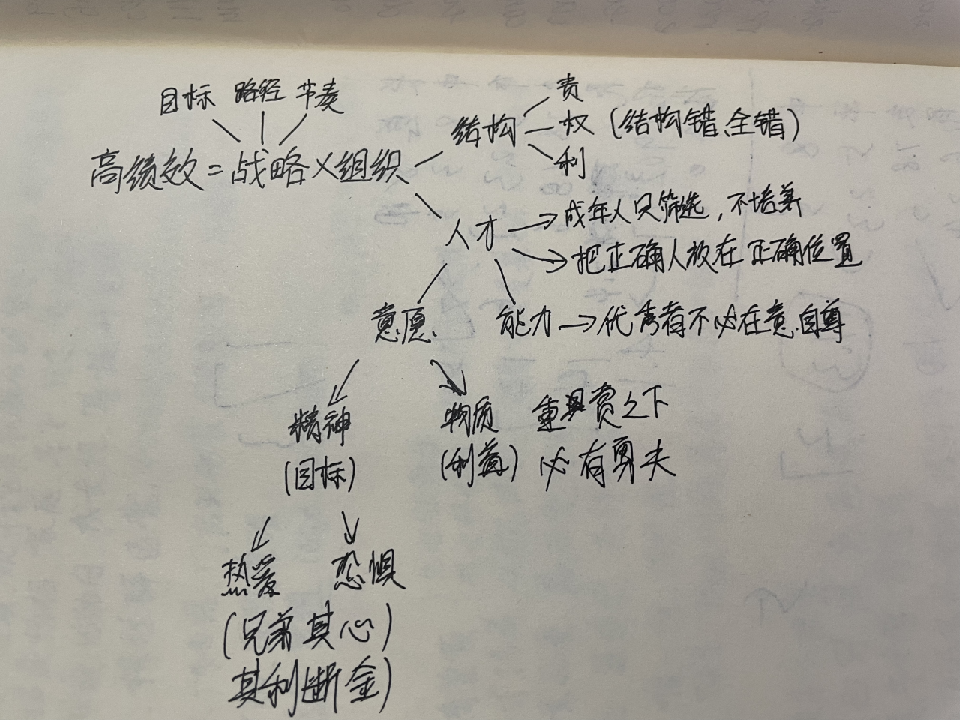 目标 路径 节奏
高绩效=战略×组织
结构
责
权 (结构错、全错)
利
人才
→成年人只筛选,不培养
→把正确人放在正确位置
意愿
能力→优秀者不必在意自尊
精神
(目标)
物质 重赏之下
(利益) 必有勇夫
热爱 恐惧
(兄弟其心)
其利断金)